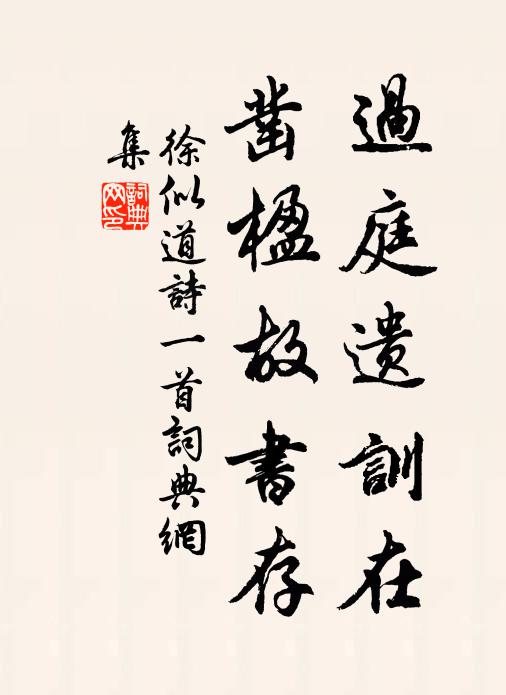 過庭遺訓在
鑿楹故書存
徐似道詩一首詞典網
集
詞典網印